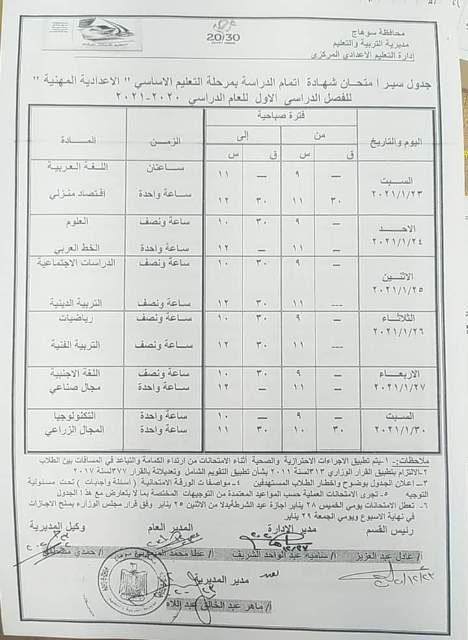 محافظة سوهاج
مديرية التربية والتعليم
إدارة التعليم الاعدادي المركزي
20/30
جدول سير امتحان شهادة اتمام الدراسة بمرحلة التعليم الاساسي " الاعدادية المهنية "
للفصل الدراسي الاول للعام الدراسي ٢٠٢٠-٢٠٢١
اليوم والتاريخ فترة صباحية الزمن المادة
من إلى
ق س ق س
السبت ٢٠٢١/١/٢٣
— ٩ — ١١ ساعتان اللغة العربية
٣٠ ١١ ٣٠ ١٢ ساعة واحدة اقتصاد منزلي
الاحد ٢٠٢١/١/٢٤
— ٩ ٣٠ ١٠ ساعة ونصف العلوم
— ١١ — ١٢ ساعة واحدة الخط العربي
الاثنين ٢٠٢١/١/٢٥
— ٩ ٣٠ ١٠ ساعة ونصف الدراسات الاجتماعية
--- ١١ ٣٠ ١٢ ساعة ونصف التربية الدينية
الثلاثاء ٢٠٢١/١/٢٦
— ٩ ٣٠ ١٠ ساعة ونصف رياضيات
--- ١١ ٣٠ ١٢ ساعة ونصف التربية الفنية
الاربعاء ٢٠٢١/١/٢٧
— ٩ ٣٠ ١٠ ساعة ونصف اللغة الاجنبية
— ١١ — ١٢ ساعة واحدة مجال صناعي
السبت ٢٠٢١/١/٣٠
— ٩ — ١٠ ساعة واحدة التكنولوجيا
٣٠ ١٠ ٣٠ ١١ ساعة واحدة المجال الزراعي
ملاحظات:- ١-يتم تطبيق الاجراءات الاحترازية والصحية أثناء الامتحانات من ارتداء الكمامة والتباعد في المسافات بين الطلاب
٢-الالتزام بتطبيق القرار الوزاري ٣١٣ لسنة ٢٠١١ بشأن تطبيق التقويم الشامل وتعديلاته بالقرار ٣٧٧ لسنة ٢٠١٧
٣- إعلان الجدول بوضوح واخطار الطلاب المستهدفين ٤- مواصفات الورقة الامتحانية ( اسئلة واجابات ) تحت مسئولية
التوجيه ٥- تجرى الامتحانات العملية حسب المواعيد المعتمدة من التوجيهات المختصة بما لا يتعارض مع هذا الجدول
٦- تعطل الامتحانات يومي الخميس ٢٨ يناير اجازة عيد الشرطة بدلا من الاثنين ٢٥ يناير وفق قرار مجلس الوزراء بمنح الاجازات
في نهاية الاسبوع ويومي الجمعة ٢٩ يناير
رئيس القسم مدير الادارة المدير العام وكيل المديرية
أ/ عادل عبد العزيز أ/ ساميه عبد الواحد الشريف أ/ عطا محمد أ/ حمدي
مدير المديرية
أ/ ماهر عبد الخالق عبد اللاه